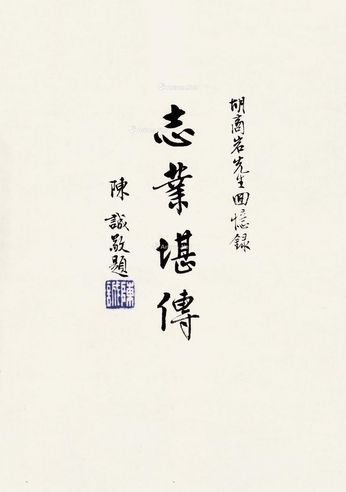 胡商岩先生回憶録
志業堪傳
陳誠敬題
陳誠